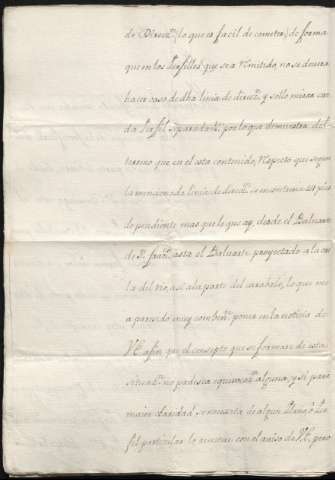 de Direcz.ⁿ (lo que es facil de cometer) de forma
que en los Perfilles que se a remitido, no se devera
hacer caso de dha linia de direcz.ⁿ y sollo mirar ca-
da Perfil separadam.ᵗᵉ por lo que demuestra del
terreno que en el esta contenido, respecto que segun
la mencionada linia de direcz.ⁿ se encontraria 21 pies
de pendiente mas que lo que ay desde el Baluarte
de S. Fran.ᶜᵒ asta el Baluarte proyectado a la ori-
lla del rio, asi a la parte del
a paresido muy comben.ᵗᵉ poner en la noticia de
VE afin que el consepto que se formare de esta
situaz.ⁿ no padesca equivocaz.ⁿ alguna, y si para
maior claridad se nesesita de algun Plano, ò Per-
fil particular lo sacarse con el aviso de VE, pero